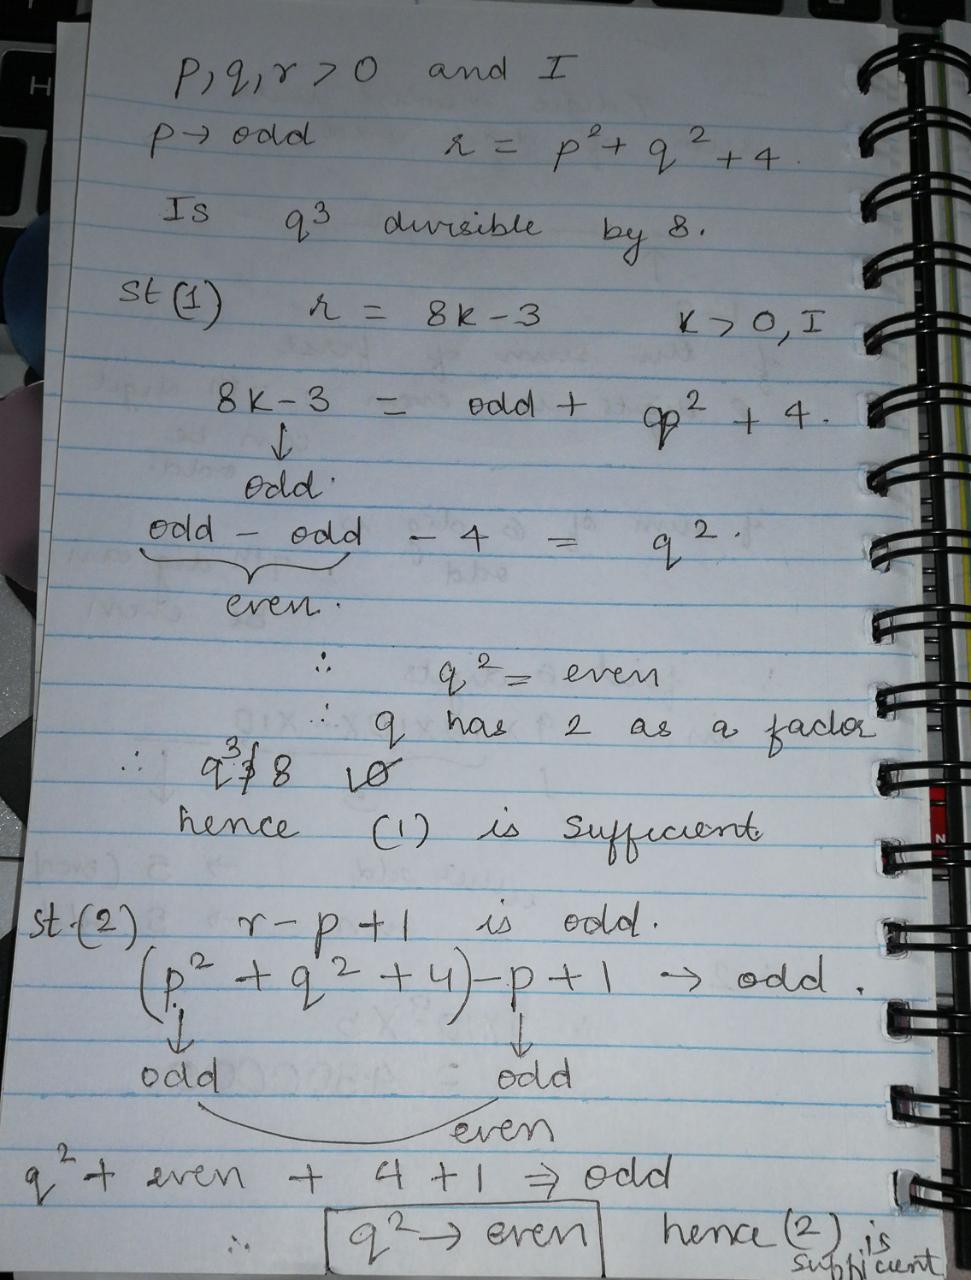 p, q, r > 0 and I
p → odd r = p² + q² + 4.
Is q³ divisible by 8.
St (1) r = 8k - 3 k > 0, I
8k - 3 = odd + q² + 4.
↓
odd.
odd - odd - 4 = q².
even.
∴ q² = even
∴ q has 2 as a factor
∴ q³ 8
hence (1) is sufficient
St. (2) r - p + 1 is odd.
(p² + q² + 4) - p + 1 → odd.
↓ ↓
odd odd
even
q² + even + 4 + 1 ⇒ odd
∴ q² → even hence (2) is
sufficient